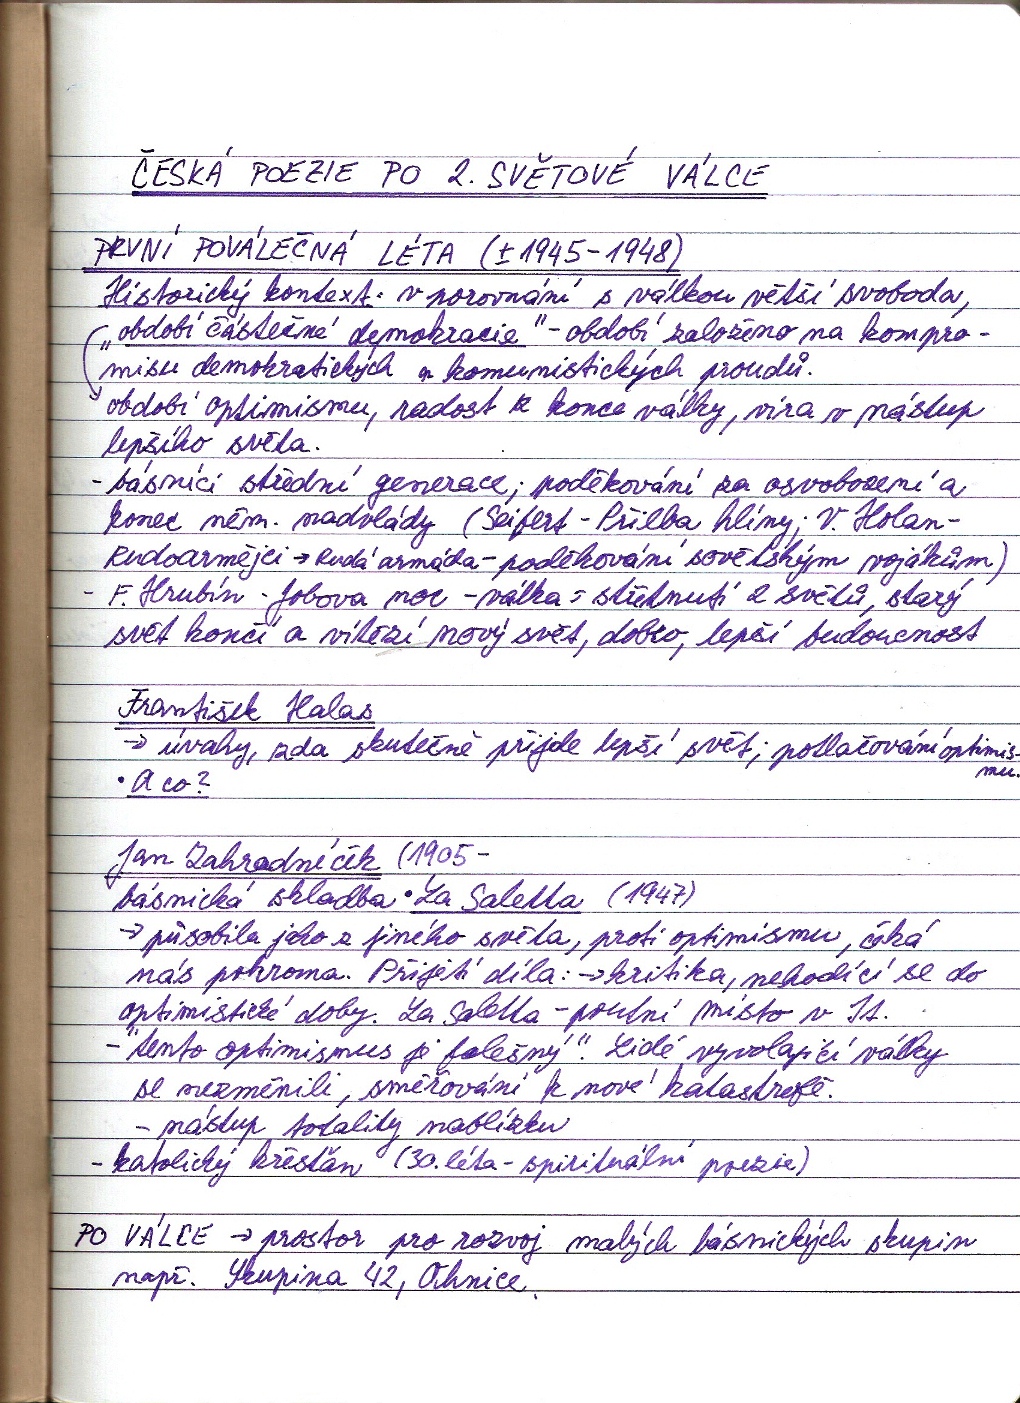 ČESKÁ POEZIE PO 2. SVĚTOVÉ VÁLCE
PRVNÍ POVÁLEČNÁ LÉTA (± 1945-1948)
Historický kontext: v porovnání s válkou větší svoboda,
„období částečné demokracie" - období založeno na kompro-
misu demokratických a komunistických proudů.
období optimismu, radost z konce války, víra v nástup
lepšího světa.
- básníci střední generace; poděkování za osvobození a
konec něm. nadvlády (Seifert - Přilba hlíny; V. Holan-
Rudoarmějci → Rudá armáda - poděkování sovětským vojákům)
- F. Hrubín - Jobova noc - válka = střetnutí 2 světů, starý
svět končí a vítězí nový svět, dobro, lepší budoucnost
František Halas
→ úvahy, zda skutečně přijde lepší svět; potlačování optimis-
mu.
• A co?
Jan Zahradníček (1905 -
básnická skladba • La Saletta (1947)
→ působila jako z jiného světa, proti optimismu, čeká
nás pohroma. Přijetí díla: → kritika, nehodící se do
optimistické doby. La Saletta - poutní místo v It.
- "tento optimismus je falešný". Lidé vyvolající války
se nezměnili, směřování k nové katastrofě.
- nástup totality nablízku
- katolický křesťan (30. léta - spirituální poezie)
PO VÁLCE → prostor pro rozvoj malých básnických skupin
např. Skupina 42, Ohnice.